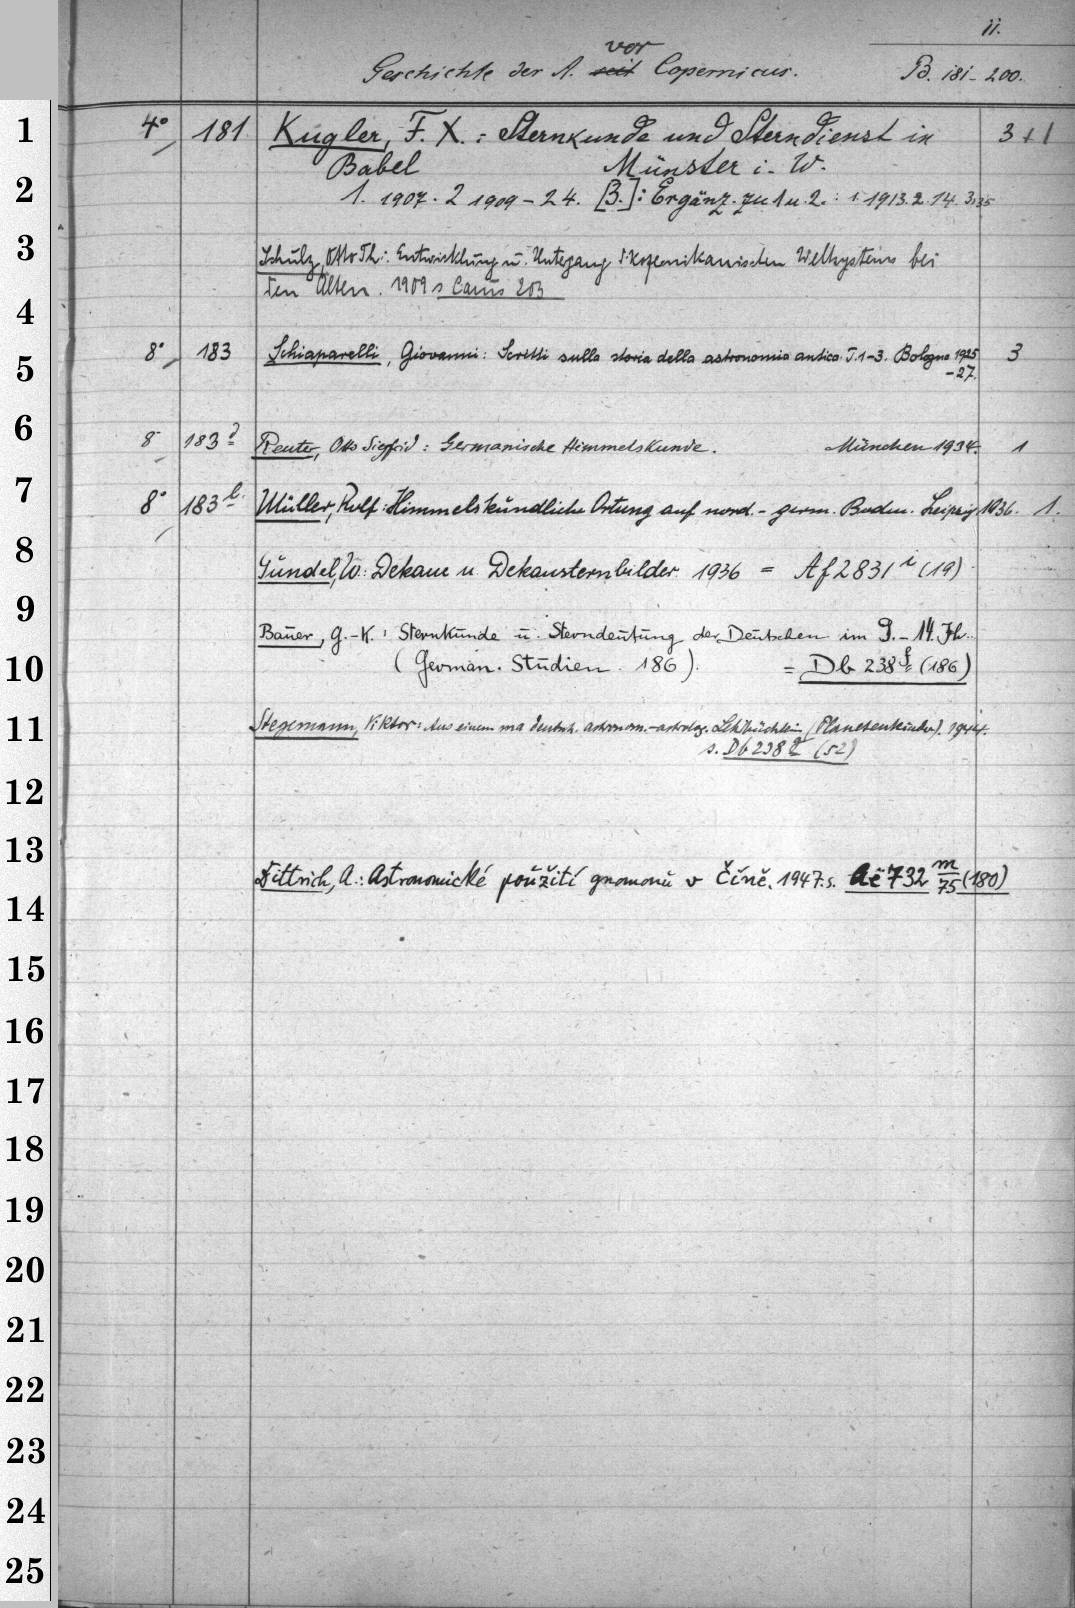 11.
vor
Geschichte der A. seit Copernicus. B. 181-200.
1 4° 181 Kugler, F. X.: Sternkunde und Sterndienst in 3+1
Babel Münster i. W.
2 1. 1907. 2 1909-24. [3.]: Ergänz. zu 1 u. 2.: 1. 1913. 2. 14. 3. 35
3 Schulz, Otto Th.: Entwicklung u. Untergang d. kopernikanischen Weltsystems bei
den Alten. 1909 s Carus 203
4
5 8° 183 Schiaparelli, Giovanni: Scritti sulla storia della astronomia antica T. 1-3. Bologna 1925 3
-27.
6 8° 183 a Reuter, Otto Sigfrid: Germanische Himmelskunde. München 1934. 1
7 8° 183 b. Müller, Rolf: Himmelskundliche Ortung auf nord.-germ. Boden. Leipzig 1936. 1.
8 Gundel, W.: Dekane u. Dekansternbilder. 1936 = Af 2831 i (19)
9 Bauer, G.-K.: Sternkunde u. Sterndeutung der Deutschen im 9.-14. Jh.
10 (German. Studien. 186). = Db 238 f (186)
11 Stegemann, Viktor: Aus einem ma deutsch. astronom.-astrolog. Lehrbüchlein (Planetenkinder). 1944.
s. Db 238 (52)
12
13 Dittrich, A.: Astronomické použití gnomonu v Číně. 1947. s. Ae 732 m/75 (180)
14
15
16
17
18
19
20
21
22
23
24
25